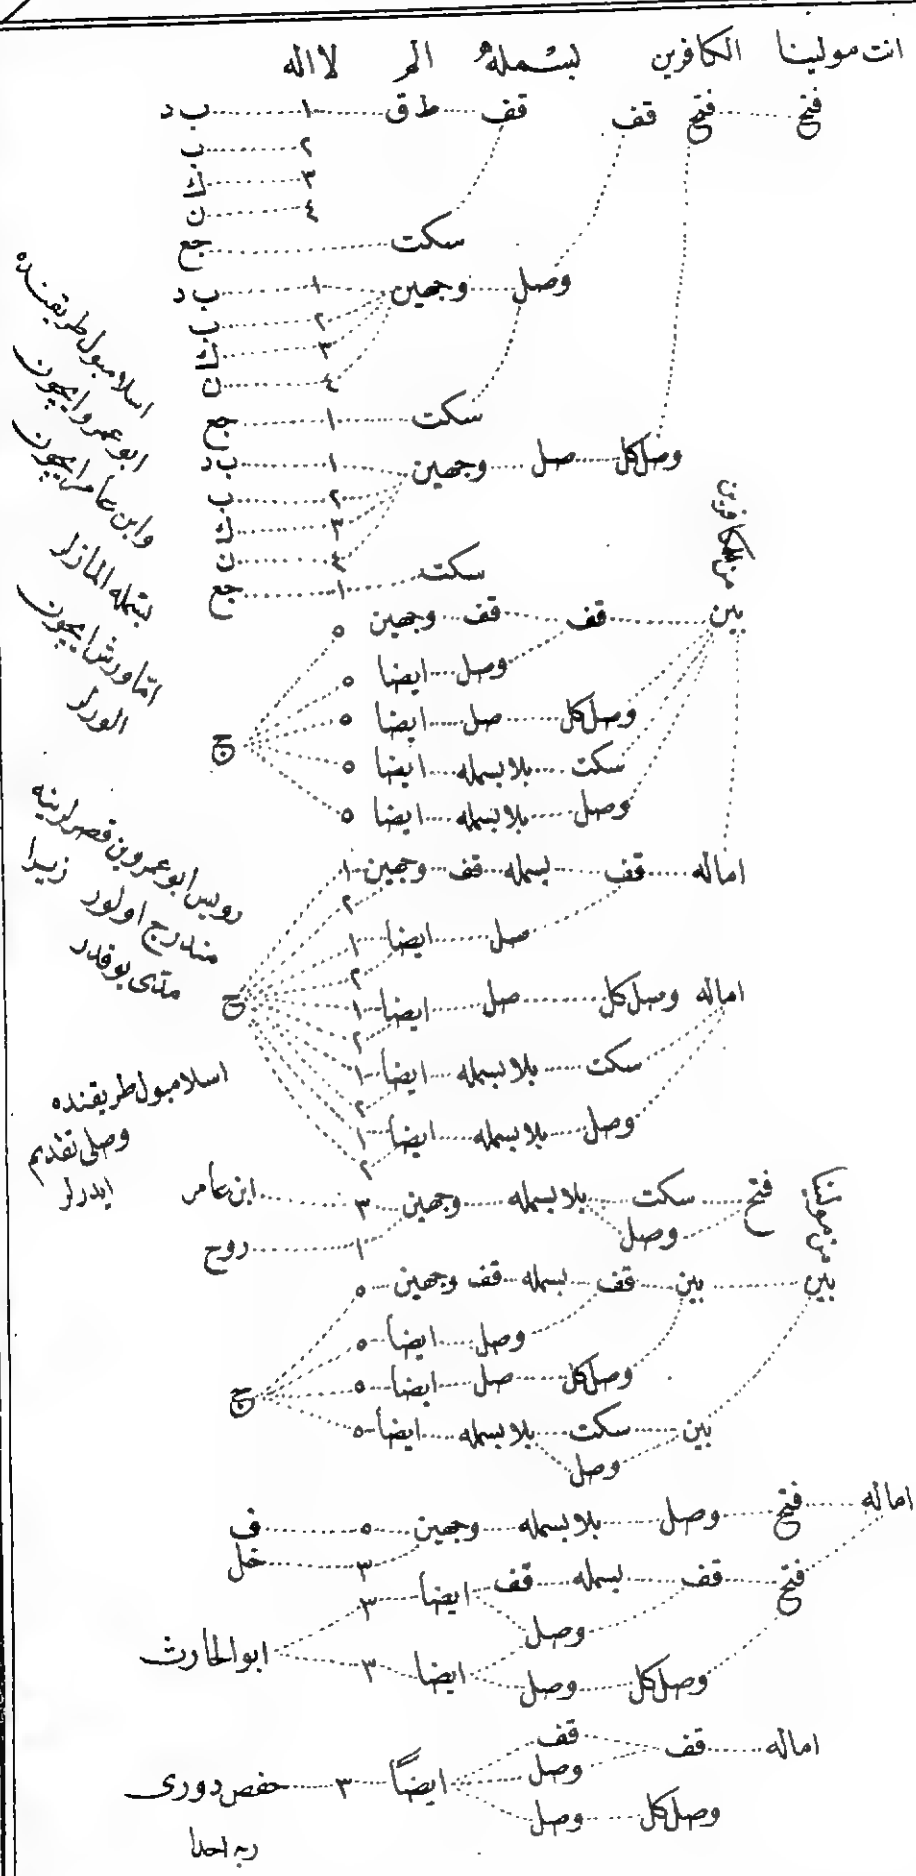 انت مولينا الكافرين بسمله الم لا اله
فتح فتح قف قف ط ق ١ ب د
٢ ب
٣ ك
٤ ن
سكت جع
وصل وجهين ١ ب د
٢ ب
٣ ك
٤ ن
سكت ١ جع
وصل كل صل وجهين ١ ب د
٢ ب
٣ ك
٤ ن
سكت ١ جع
من الكافرين
بين قف قف وجهين ٥
وصل ايضا ٥
وصل كل صل ايضا ٥ ج
سكت بلا بسمله ايضا ٥
وصل بلا بسمله ايضا ٥
اماله قف بسمله قف وجهين ١
٢
صل ايضا ١
٢
اماله وصل كل صل ايضا ١ ح
٢
سكت بلا بسمله ايضا ١
٢
وصل بلا بسمله ايضا ١
٢
فتح سكت بلا بسمله وجهين ٣ ابن عامر
وصل ١ روح
من مولينا
بين بين قف بسمله قف وجهين ٥
وصل ايضا ٥
وصل كل صل ايضا ٥ ج
بين سكت بلا بسمله ايضا ٥
وصل
اماله فتح وصل بلا بسمله وجهين ٥ ف
٣ خل
فتح قف بسمله قف ايضا ٣
وصل ابو الحارث
وصل كل وصل ايضا ٣
اماله قف قف
وصل ايضاً ٣ حفص دورى
وصل كل وصل
اسلامبول طريقنده
ابو عمرو ايچون
وابن عامر ايچون
بسمله المازلر
اما ورش ايچون
الورلر
رويس ابو عمروين قصرلرينه
مندرج اولور زيرا
مدى يوقدر
اسلامبول طريقنده
وصلى تقديم
ايدرلر